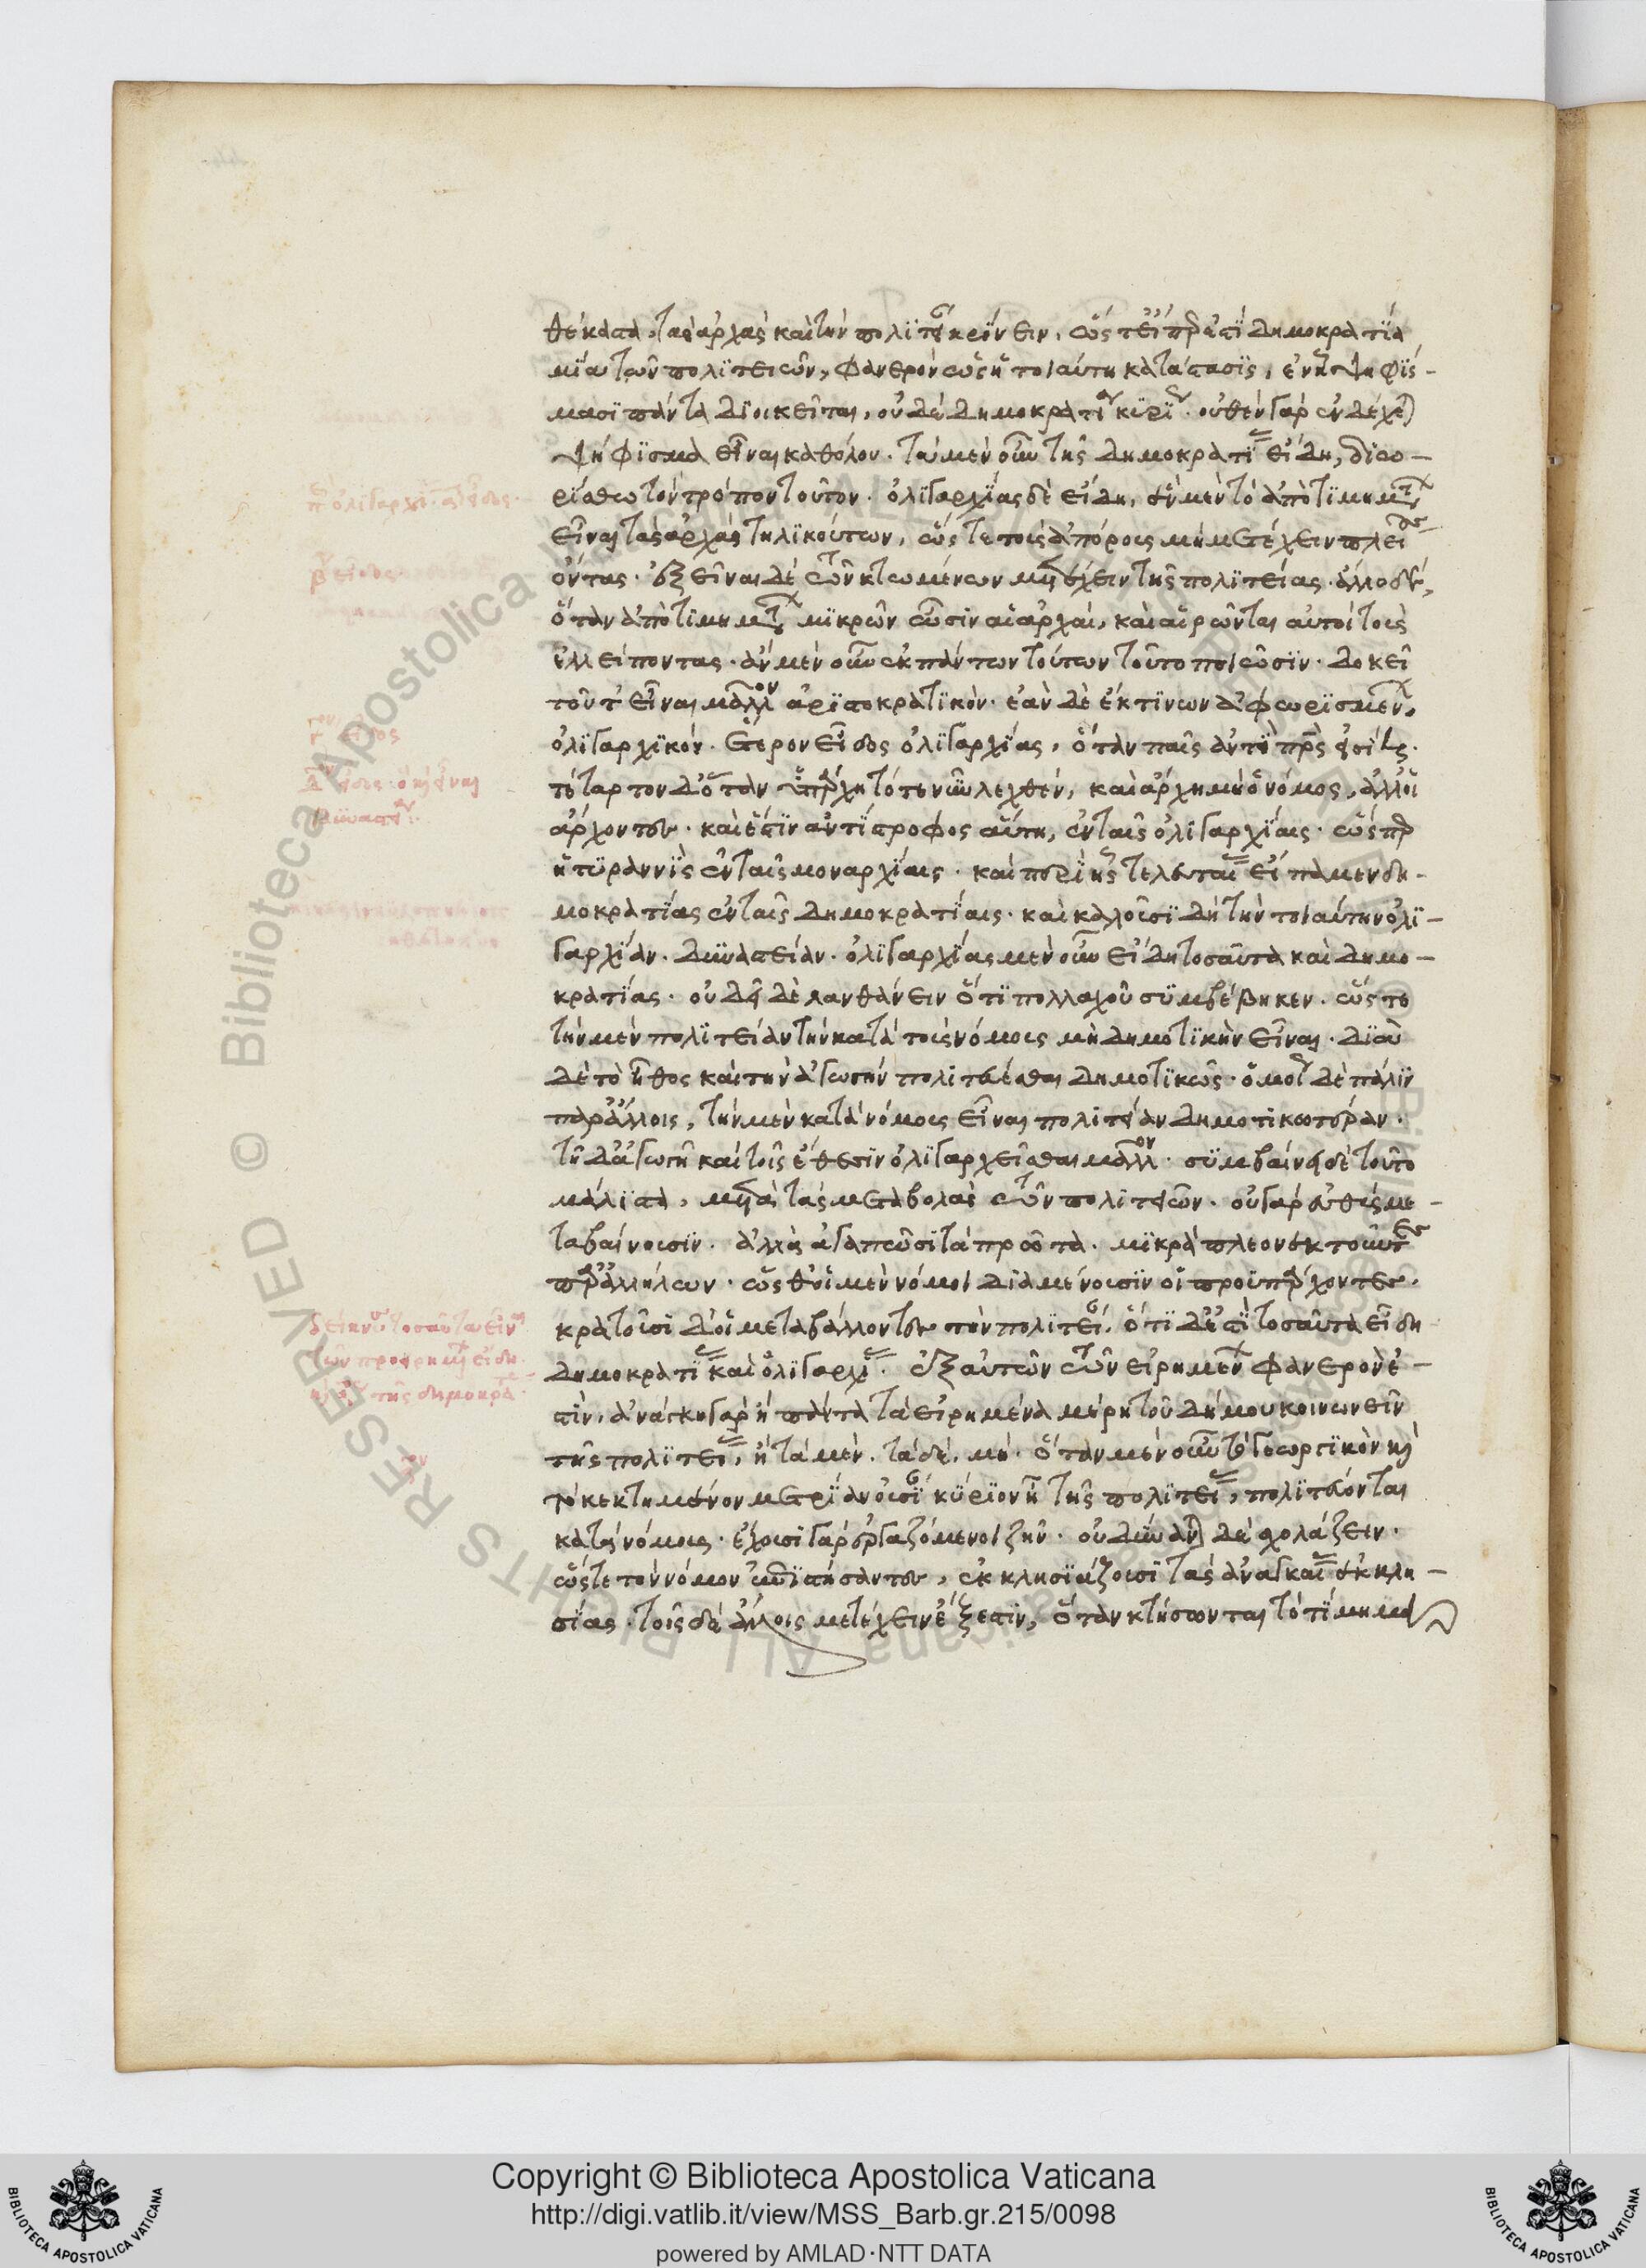 θέκαστα, τὰς ἀρχὰς καὶ τὴν πολιτείαν κρίνειν, ὥστ' εἴπερ ἐστὶ δημοκρατία
μία τῶν πολιτειῶν, φανερὸν ὡς ἡ τοιαύτη κατάστασις, ἐν ᾗ ψηφίσ-
μασι πάντα διοικεῖται, οὐδὲ δημοκρατία κυρίως· οὐθὲν γὰρ ἐνδέχεται
ψήφισμα εἶναι καθόλου. τὰ μὲν οὖν τῆς δημοκρατίας εἴδη, διω-
ρίσθω τὸν τρόπον τοῦτον. ὀλιγαρχίας δὲ εἴδη, ἓν μὲν τὸ ἀπὸ τιμημάτων
εἶναι τὰς ἀρχὰς τηλικούτων, ὥστε τοὺς ἀπόρους μὴ μετέχειν πλείους
ὄντας· ἐξεῖναι δὲ τῶν κτωμένων μετέχειν τῆς πολιτείας. ἄλλο δὲ,
ὅταν ἀπὸ τιμημάτων μικρῶν ὦσιν αἱ ἀρχαί, καὶ αἱρῶνται αὐτοὶ τοὺς
ἐλλείποντας. ἂν μὲν οὖν ἐκ πάντων τούτων τοῦτο ποιῶσιν. δοκεῖ
τοῦτ' εἶναι μᾶλλον ἀριστοκρατικόν. ἐὰν δὲ ἔκ τινων ἀφωρισμένων,
ὀλιγαρχικόν. ἕτερον εἶδος ὀλιγαρχίας, ὅταν παῖς ἀντὶ πατρὸς εἰσίῃ.
τέταρτον δ' ὅταν ὑπάρχῃ τό τε νῦν λεχθέν, καὶ ἄρχῃ μὴ ὁ νόμος, ἀλλ' οἱ
ἄρχοντες. καὶ ἔστιν ἀντίστροφος αὕτη, ἐν ταῖς ὀλιγαρχίαις. ὥσπερ
ἡ τυραννὶς ἐν ταῖς μοναρχίαις. καὶ περὶ ἧς τελευταίας εἴπαμεν δη-
μοκρατίας ἐν ταῖς δημοκρατίαις. καὶ καλοῦσι δὴ τὴν τοιαύτην ὀλι-
γαρχίαν. δυναστείαν. ὀλιγαρχίας μὲν οὖν εἴδη τοσαῦτα καὶ δημο-
κρατίας. οὐ δεῖ δὲ λανθάνειν ὅτι πολλαχοῦ συμβέβηκεν. ὥστε
τὴν μὲν πολιτείαν τὴν κατὰ τοὺς νόμους μὴ δημοτικὴν εἶναι. διὰ
δὲ τὸ ἦθος καὶ τὴν ἀγωγὴν πολιτεύεσθαι δημοτικῶς. ὁμοίως δὲ πάλιν
παρ' ἄλλοις, τὴν μὲν κατὰ νόμους εἶναι πολιτείαν δημοτικωτέραν.
τῇ δ' ἀγωγῇ καὶ τοῖς ἔθεσιν ὀλιγαρχεῖσθαι μᾶλλον. συμβαίνει δὲ τοῦτο
μάλιστα, μετὰ τὰς μεταβολὰς τῶν πολιτειῶν. οὐ γὰρ εὐθὺς με-
ταβαίνουσιν. ἀλλὰ ἀγαπῶσι τὰ πρῶτα. μικρὰ πλεονεκτοῦντες
παρ' ἀλλήλων. ὥσθ' οἱ μὲν νόμοι διαμένουσιν οἱ προϋπάρχοντες.
κρατοῦσι δ' οἱ μεταβάλλοντες τὴν πολιτείαν. ὅτι δ' ἐστὶ τοσαῦτα εἴδη
δημοκρατίας καὶ ὀλιγαρχίας. ἐξ αὐτῶν τῶν εἰρημένων φανερόν ἐ-
στιν, ἀνάγκη γὰρ ἢ πάντα τὰ εἰρημένα μέρη τοῦ δήμου κοινωνεῖν
τῆς πολιτείας, ἢ τὰ μὲν. τὰ δὲ, μή. ὅταν μὲν οὖν τὸ γεωργικὸν καὶ
τὸ κεκτημένον μετρίαν οὐσίαν κύριον ᾖ τῆς πολιτείας, πολιτεύονται
κατὰ νόμους. ἔχουσι γὰρ ἐργαζόμενοι ζῆν. οὐ δύνανται δὲ σχολάζειν.
ὥστε τὸν νόμον ἐπιστήσαντες, ἐκκλησιάζουσι τὰς ἀναγκαίας ἐκκλη-
σίας. τοῖς δὲ ἄλλοις μετέχειν ἔξεστιν, ὅταν κτήσωνται τὸ τίμημα
Copyright © Biblioteca Apostolica Vaticana
http://digi.vatlib.it/view/MSS_Barb.gr.215/0098
powered by AMLAD·NTT DATA